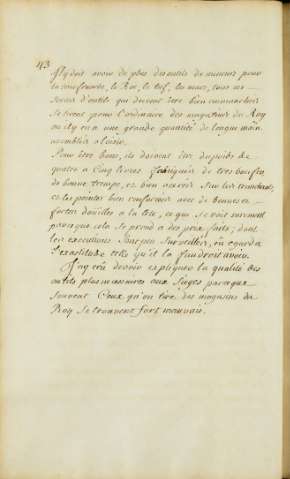 43
Il y doit avoir de plus des outils de mineurs pour
la conssuette, le Roc, le tuf, les murs, tous ces
Sortes d'outils qui doivent être bien emmanchés
Se tirent pour l'ordinaire des magasins du Roy
ou il y en a une grande quantité de longue main
assemblés a loisir.
Pour être bons, ils doivent être du poids de
quatre a Cinq livres fabriquéz de tres bon fer
de bonne trempe, et bien acerés Sur les tranchants,
et les pointes bien renforcées avec de bonnes et
fortes douilles a la tête, ce qui Se voit rarement
parceque cela Se prend a des prix faits; dont
les executions Sont peu Surveillées, eu egard a
l'exactitude telle qu'il la faudroit avoir.
J'ay crû devoir expliquer la qualité des
outils plus necessaires aux Sieges parceque
Souvent Ceux qu'on tire des magasins du
Roy Se trouvent fort mauvais.